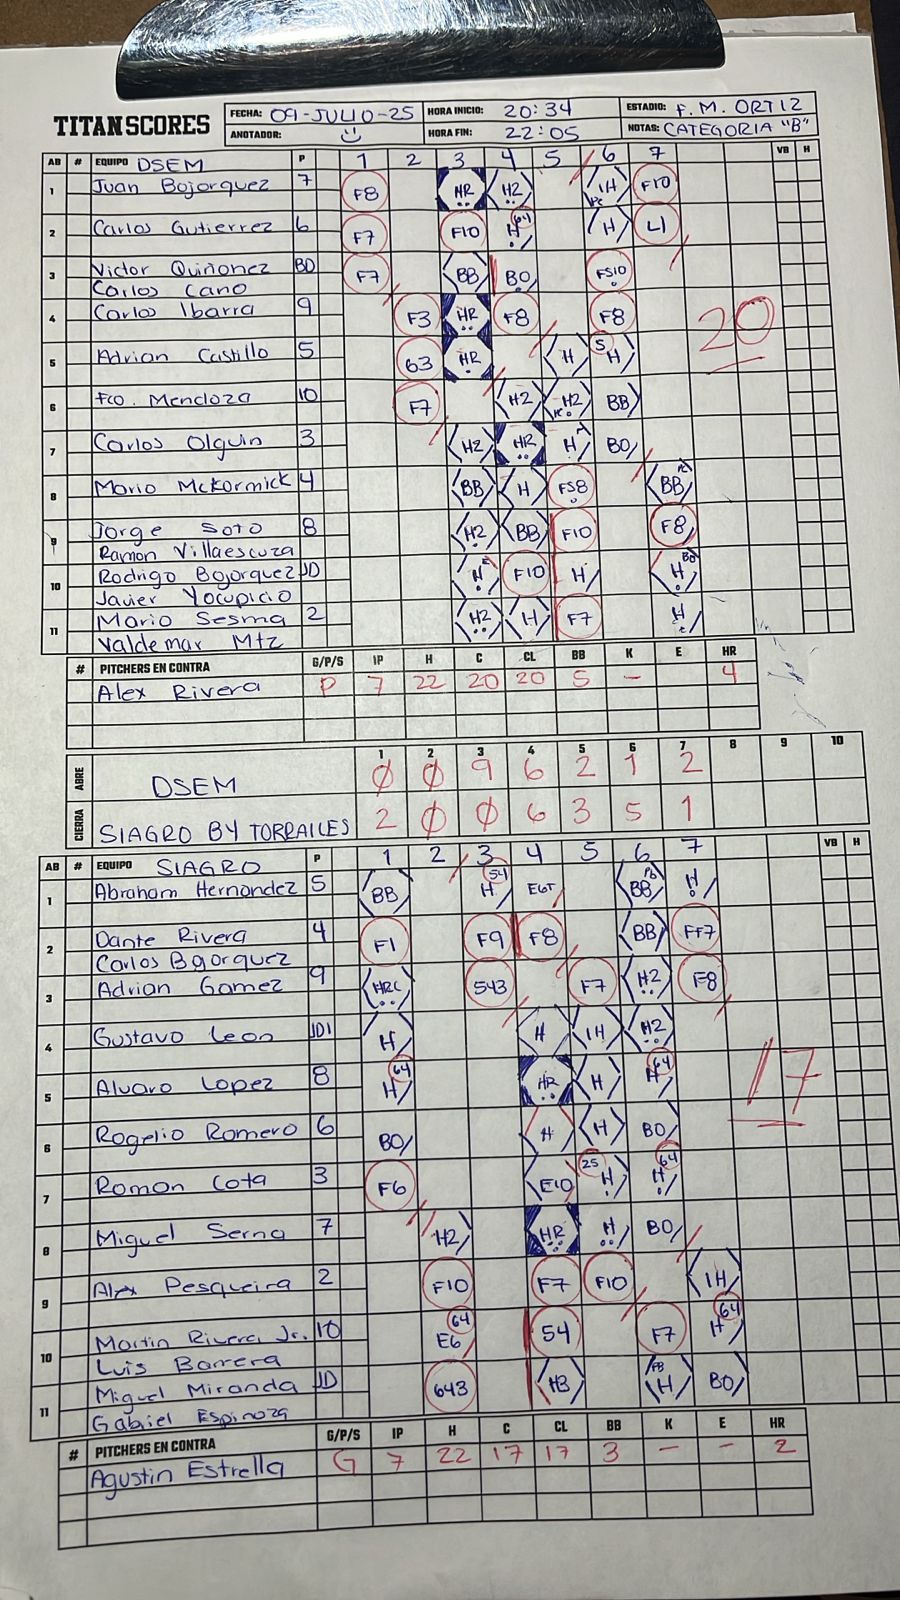 TITANSCORES
FECHA: 09-JULIO-25 HORA INICIO: 20:34 ESTADIO: F. M. ORTIZ
ANOTADOR: HORA FIN: 22:05 NOTAS: CATEGORIA "B"
AB # EQUIPO DSEM P 1 2 3 4 5 6 7 VB H
1 Juan Bojorquez 7 F8 HR H2 1H F10
2 Carlos Gutierrez 6 F7 F10 H 64 H L1
3 Victor Quiñonez BD F7 BB BO FS10
Carlos Cano
4 Carlos Ibarra 9 F3 HR F8 F8
20
5 Adrian Castillo 5 63 HR H 5 H
6 Fco. Mendoza 10 F7 H2 H2 BB
7 Carlos Olguin 3 H2 HR H BO
8 Mario McKormick 4 BB H FS8 BB
9 Jorge Soto 8 H2 BB F10 F8
Ramon Villaescuza
10 Rodrigo Bojorquez JD H F10 H H
Javier Yocupicio
11 Mario Sesma 2 H2 H F7 H
Valdemar Mtz
# PITCHERS EN CONTRA G/P/S IP H C CL BB K E HR
Alex Rivera P 7 22 20 20 5 - 4
1 2 3 4 5 6 7 8 9 10
ABRE DSEM Ø Ø 9 6 2 1 2
CIERRA SIAGRO BY TORRAILES 2 Ø Ø 6 3 5 1
AB # EQUIPO SIAGRO P 1 2 3 4 5 6 7 VB H
1 Abraham Hernandez 5 BB H 54 E6T BB H
2 Dante Rivera 4 F1 F9 F8 BB FF7
Carlos Bojorquez
3 Adrian Gamez 9 HRC 543 F7 H2 F8
4 Gustavo Leon JD1 H H 1H H2
5 Alvaro Lopez 8 H 64 HR H H 64
17
6 Rogelio Romero 6 BO H H BO
7 Roman Cota 3 F6 E10 25 H H 64
8 Miguel Serna 7 H2 HR H BO
9 Alex Pesqueira 2 F10 F7 F10 1H
10 Martin Rivera Jr. 10 E6 64 54 F7 H 64
Luis Barrera
11 Miguel Miranda JD 643 H3 H BO
Gabriel Espinoza
# PITCHERS EN CONTRA G/P/S IP H C CL BB K E HR
Agustin Estrella G 7 22 17 17 3 - - 2